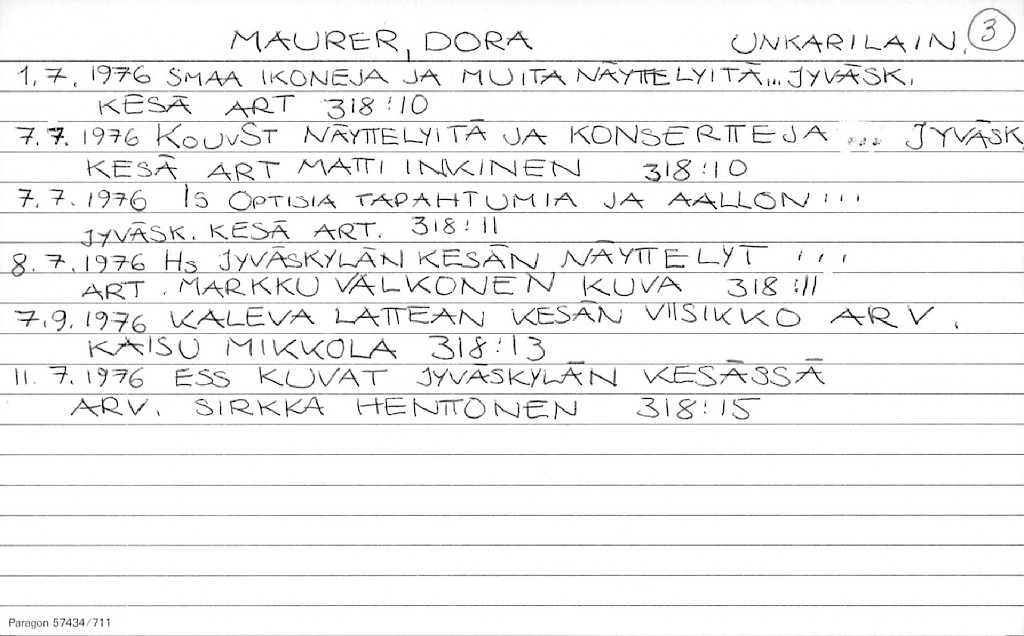 MAURER, DORA UNKARILAIN. 3
1.7.1976 SMAA IKONEJA JA MUITA NÄYTTELYITÄ... JYVÄSK.
KESÄ ART 318:10
7.7.1976 KOUVST NÄYTTELYITÄ JA KONSERTTEJA ... JYVÄSK
KESÄ ART MATTI INKINEN 318:10
7.7.1976 IS OPTISIA TAPAHTUMIA JA AALLON...
JYVÄSK. KESÄ ART. 318:11
8.7.1976 HS JYVÄSKYLÄN KESÄN NÄYTTELYT ...
ART. MARKKU VALKONEN KUVA 318:11
7.9.1976 KALEVA LATTEAN KESÄN VIISIKKO ARV.
KAISU MIKKOLA 318:13
11.7.1976 ESS KUVAT JYVÄSKYLÄN KESÄSSÄ
ARV. SIRKKA HENTTONEN 318:15
Paragon 57434/711